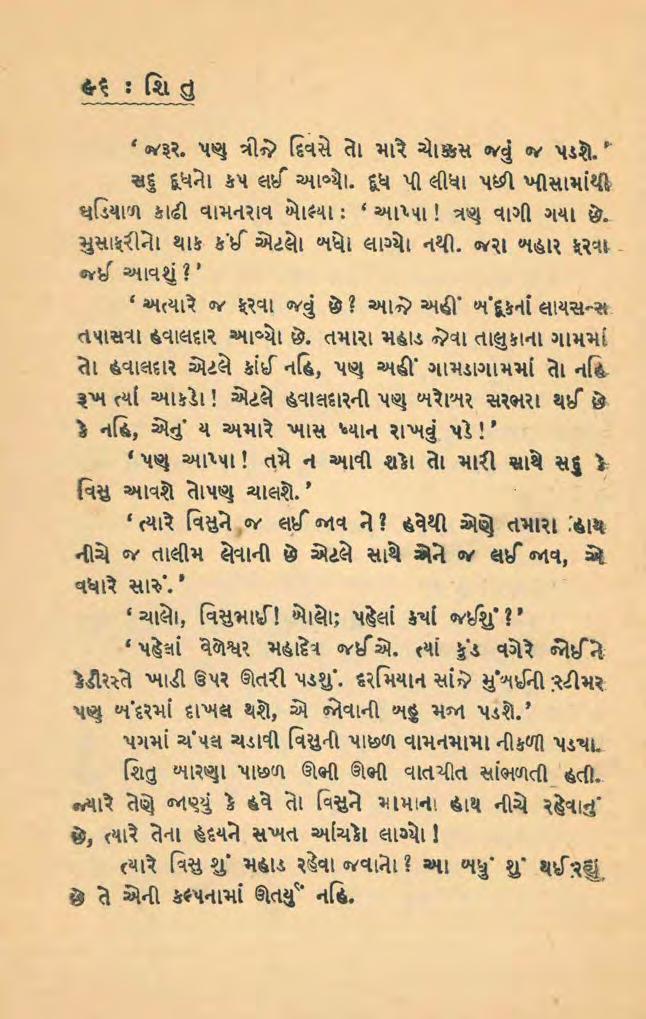 ૯૬ : શિ તુ
‘ જરૂર. પણ ત્રીજે દિવસે તો મારે ચોક્કસ જવું જ પડશે. ’
સદુ દૂધનો કપ લઈ આવ્યો. દૂધ પી લીધા પછી ખીસામાંથી
ઘડિયાળ કાઢી વામનરાવ બોલ્યા : ‘ આપ્પા ! ત્રણ વાગી ગયા છે.
મુસાફરીનો થાક કંઈ એટલો બધો લાગ્યો નથી. જરા બહાર ફરવા
જઈ આવશું ? ’
‘ અત્યારે જ ફરવા જવું છે ? આજે અહીં બંદૂકનાં લાયસન્સ
તપાસવા હવાલદાર આવ્યો છે. તમારા મહાડ જેવા તાલુકાના ગામમાં
તો હવાલદાર એટલે કાંઈ નહિ, પણ અહીં ગામડાગામમાં તો નહિ
રૂખ ત્યાં આકડો ! એટલે હવાલદારની પણ બરોબર સરભરા થઈ છે
કે નહિ, એનું ય અમારે ખાસ ધ્યાન રાખવું પડે ! ’
‘ પણ આપ્પા ! તમે ન આવી શકો તો મારી સાથે સદુ કે
વિસુ આવશે તોપણ ચાલશે. ’
‘ ત્યારે વિસુને જ લઈ જાવ ને ? હવેથી એણે તમારા હાથ
નીચે જ તાલીમ લેવાની છે એટલે સાથે એને જ લઈ જાવ, એ
વધારે સારું. ’
‘ ચાલો, વિસુભાઈ ! બોલો; પહેલાં કયાં જઈશું ? ’
‘ પહેલાં વેળેશ્વર મહાદેવ જઈએ. ત્યાં કુંડ વગેરે જોઈને
કેડીરસ્તે ખાડી ઉપર ઊતરી પડશું. દરમિયાન સાંજે મુંબઈની સ્ટીમર
પણ બંદરમાં દાખલ થશે, એ જોવાની બહુ મજા પડશે. ’
પગમાં ચંપલ ચડાવી વિસુની પાછળ વામનમામા નીકળી પડયા.
શિતુ બારણા પાછળ ઊભી ઊભી વાતચીત સાંભળતી હતી.
જ્યારે તેણે જાણ્યું કે હવે તો વિસુને મામાના હાથ નીચે રહેવાનું
છે, ત્યારે તેના હૃદયને સખત આંચકો લાગ્યો !
ત્યારે વિસુ શું મહાડ રહેવા જવાનો ? આ બધું શું થઈ રહ્યું
છે તે એની કલ્પનામાં ઊતર્યું નહિ.